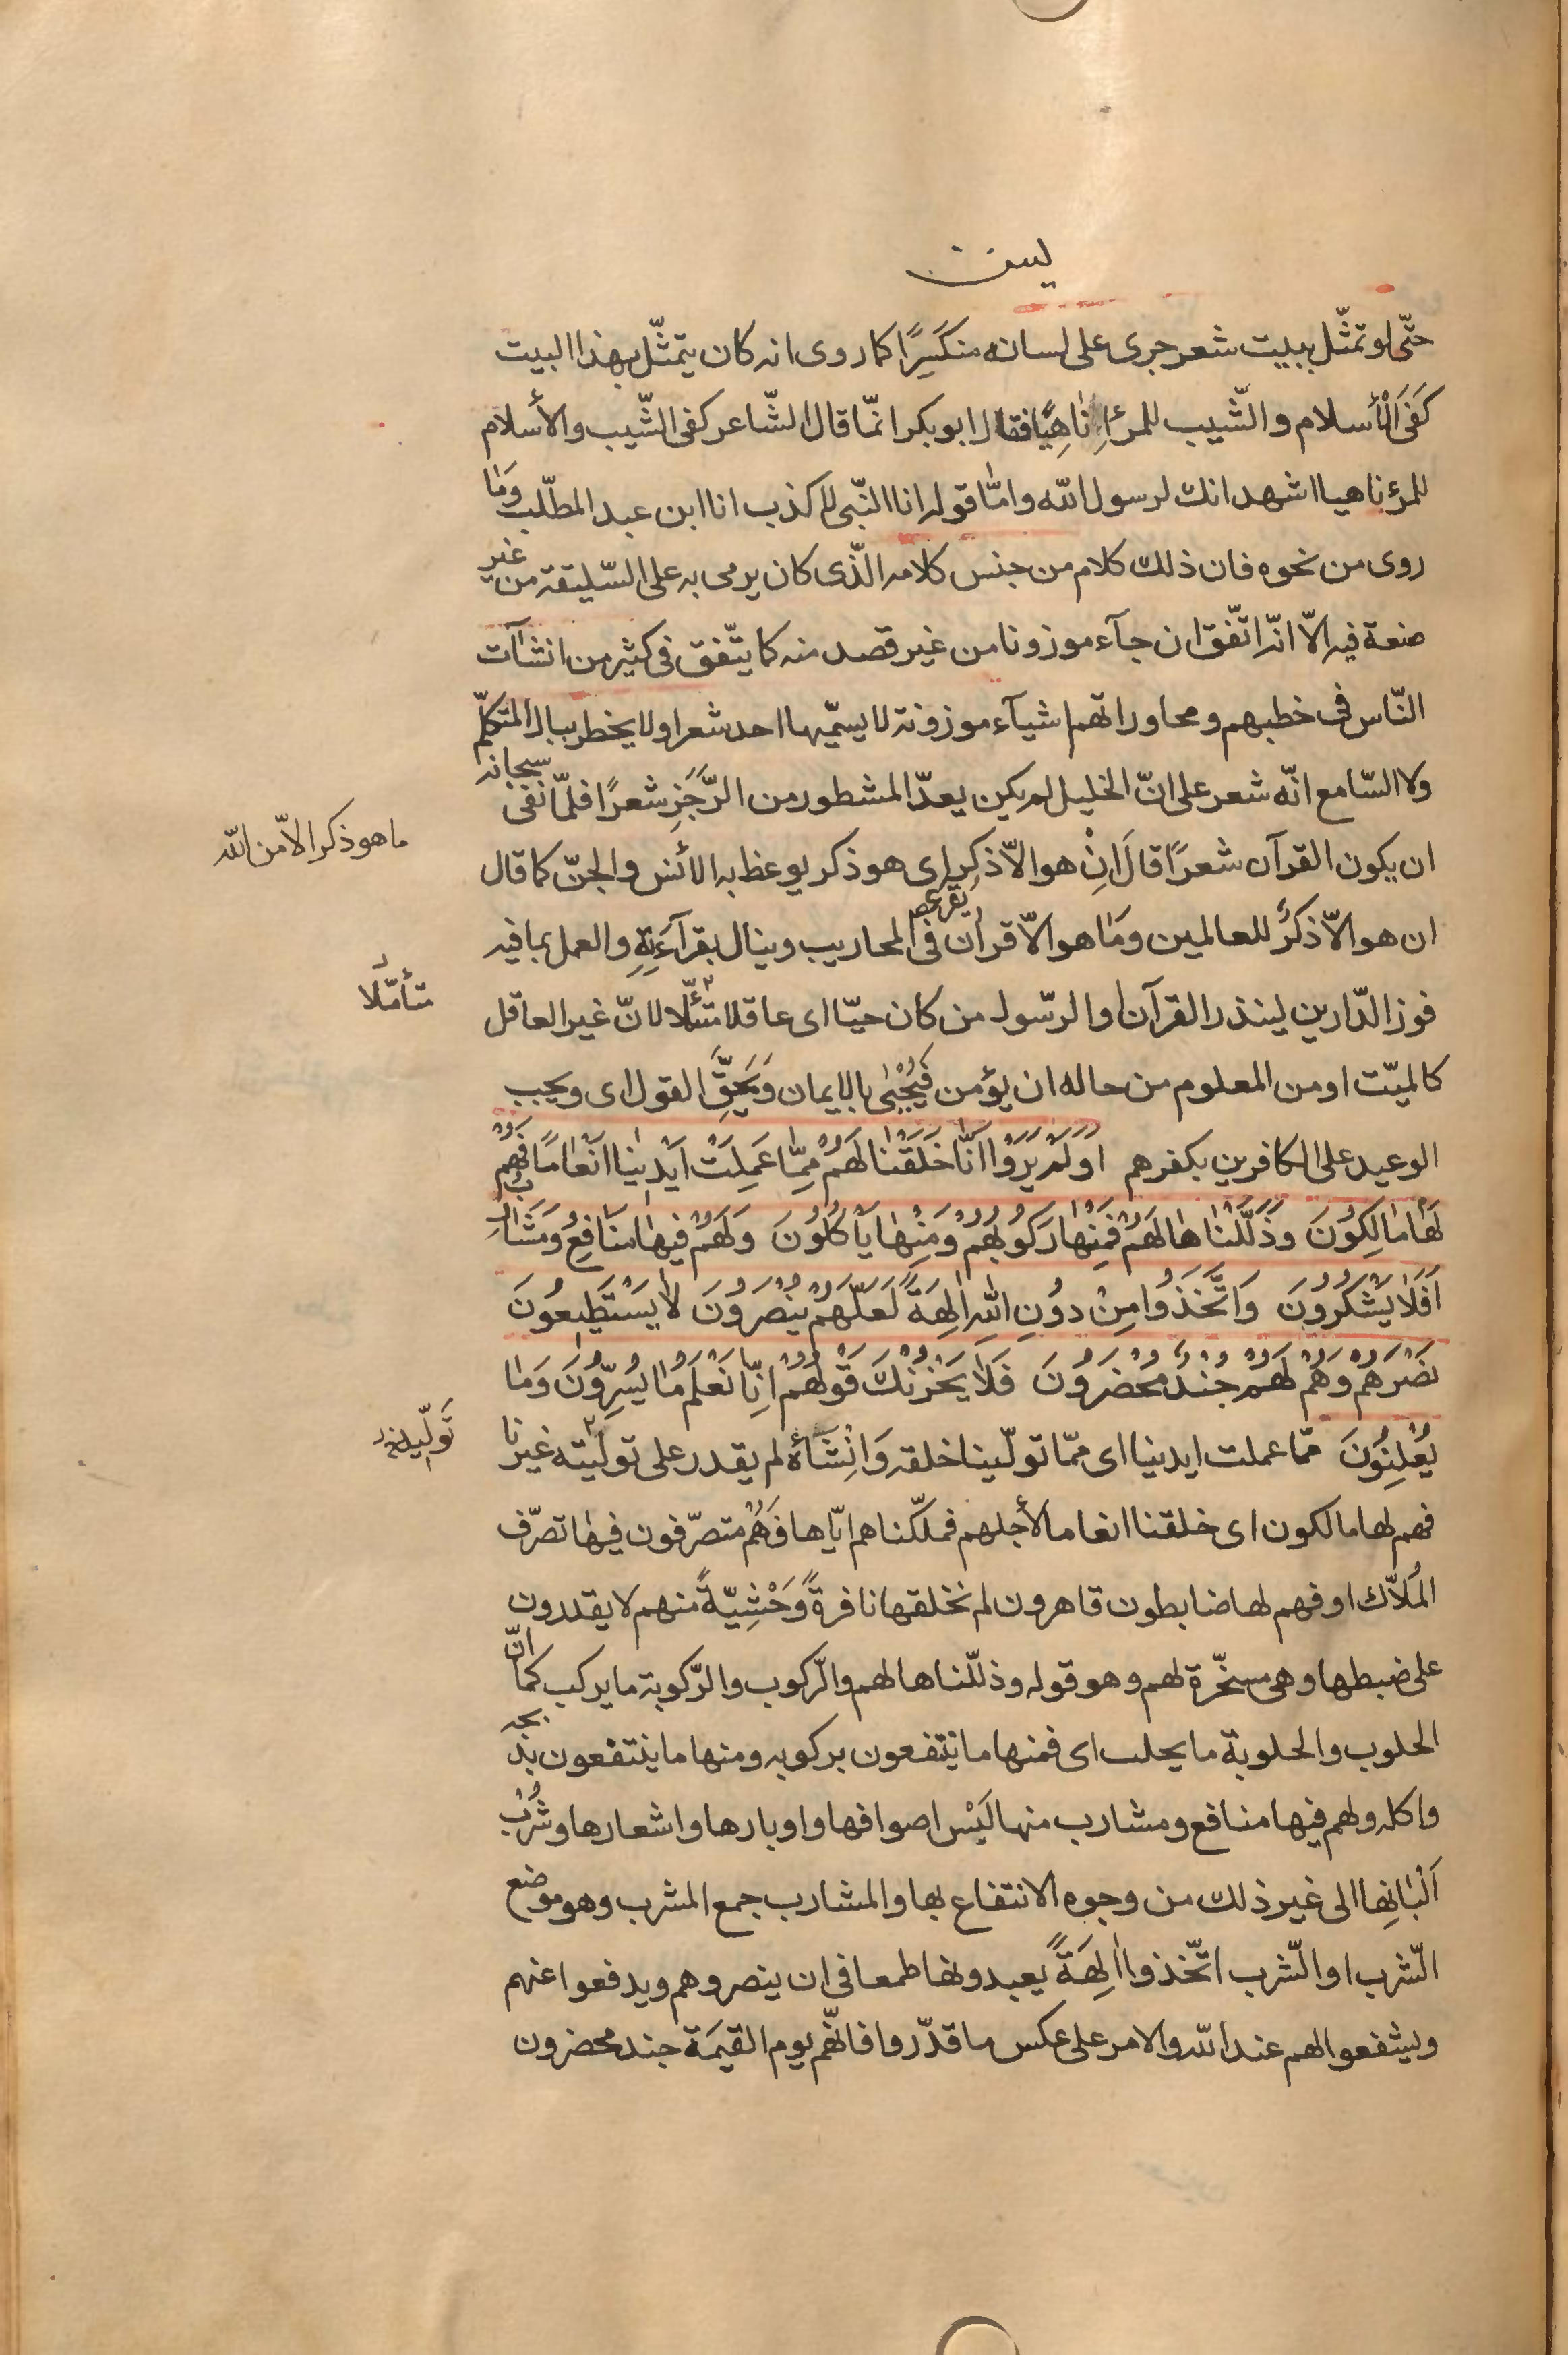 يس
حتّى لو تمثّل ببيت شعر جرى على لسانه منكَسِرًا كما روى انه كان يتمثّل بهذا البيت
كَفَى الْأسلام والشّيب للمرءِ نٰاهِيًا فقال ابوبكر انمّا قال الشّاعر كفى الشّيب والأسلام
للمرء ناهيا اشهد انك لرسول اللّه وامّا قوله انا النّبى لا كذب انا ابن عبد المطلّب وَمٰا
روى من نحوه فان ذلك كلام من جنس كلامه الّذى كان يرمى به على السّليقة من غير
صنعة فيه الاّ انّه اتّفق ان جآء موزونا من غير قصد منه كما يتّفق فى كثير من انشآت
النّاس فى خطبهم ومحاوراتهم اشيآء موزونة لا يسمّيها احد شعرا ولا يخطر ببال المتكلّم
ولا السّامع انّه شعر على انّ الخليل لم يكن يعدّ المشطور من الرَّجَزِ شعرًا فلمّا نفى سبحانه
ان يكون القرآن شعرًا قالَ اِنْ هو الاّ ذكر اى هو ذكر يوعظ به الأنس والجنّ كما قال
ما هو ذكر الاّ من اللّه
ان هو الاّ ذكرٌ للعالمين وَمٰا هو الاّ قرآن يقرء فى المحاريب وينال بقرآءَتِهِ والعمل بما فيه
فوز الدّارين لينذر القرآن او الرّسول من كان حيّا اى عاقلا متأمّلا لانّ غير العاقل
متأمّلا
كالميّت او من المعلوم من حاله ان يؤمن فَيُحْيٰى بالايمان وَيَحِقَّ القول اى ويجب
الوعيد على الكافرين بكفرهم اَوَلَمْ يَرَوْا اَنّٰا خَلَقْنٰا لَهُمْ مِمّٰا عَمِلَتْ اَيْدينٰا اَنْعٰامًا فَهُمْ
لَهٰا مٰالِكُونَ وَذَلَّلْنٰاهٰا لَهُمْ فَمِنْهٰا رَكُوبُهُمْ وَمِنْهٰا يَأْكُلُونَ وَلَهُمْ فيهٰا مَنٰافِعُ وَمَشٰارِبُ
اَفَلٰا يَشْكُرُونَ وَاتَّخَذُوا مِنْ دُونِ اللّٰهِ اٰلِهَةً لَعَلَّهُمْ يُنْصَرُونَ لٰا يَسْتَطيعُونَ
نَصْرَهُمْ وَهُمْ لَهُمْ جُنْدٌ مُحْضَرُونَ فَلٰا يَحْزُنْكَ قَوْلُهُمْ اِنّٰا نَعْلَمُ مٰا يُسِرُّونَ وَمٰا
يُعْلِنُونَ ممّا عملت ايدينا اى ممّا تولّينا خلقه وَاِنْشٰآءَهُ لم يقدر على توليّته غيرنا
فهم لها مالكون اى خلقنا انعاما لأجلهم فملّكناهم ايّاها فَهُمْ متصرّفون فيهٰا تصرّف
المُلاّك او فهم لها ضابطون قاهرون لم نخلقها نافرةً وَحْشِيّةً منهم لا يقدرون
على ضبطها وهى مسخّرة لهم وهو قوله وذلّلناها لهم والرّكوب والرّكوبة ما يركب كما انّ
الحلوب والحلوبة ما يحلب اى فمنها ما ينتفعون بركوبه ومنها ما ينتفعون بذبحه
واكله ولهم فيها منافع ومشارب منها لُبْس اصوافها واوبارها واشعارها وشُرْب
اَلْبٰانِهٰا الى غير ذلك من وجوه الانتفاع بها والمشارب جمع المشرب وهو موضع
الشّرب او الشّرب اتّخذوا اٰلِهَةً يعبدونها طمعا فى ان ينصروهم ويدفعوا عنهم
ويشفعوا لهم عند اللّه والامر على عكس ما قدّروا فانّهم يوم القيمَة جند محضرون